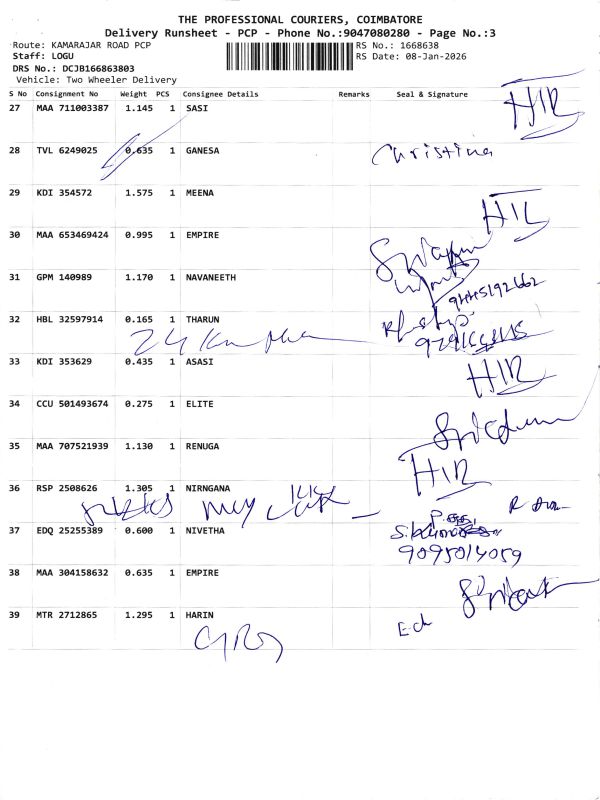 THE PROFESSIONAL COURIERS, COIMBATORE
Delivery Runsheet - PCP - Phone No.:9047080280 - Page No.:3
Route: KAMARAJAR ROAD PCP RS No.: 1668638
Staff: LOGU RS Date: 08-Jan-2026
DRS No.: DCJB166863803
Vehicle: Two Wheeler Delivery
S No Consignment No Weight PCS Consignee Details Remarks Seal & Signature
27 MAA 711003387 1.145 1 SASI
28 TVL 6249025 0.635 1 GANESA Christina
29 KDI 354572 1.575 1 MEENA
30 MAA 653469424 0.995 1 EMPIRE
31 GPM 140989 1.170 1 NAVANEETH
9445192662
32 HBL 32597914 0.165 1 THARUN
33 KDI 353629 0.435 1 ASASI
34 CCU 501493674 0.275 1 ELITE
35 MAA 707521939 1.130 1 RENUGA
36 RSP 2508626 1.305 1 NIRNGANA
37 EDQ 25255389 0.600 1 NIVETHA
9095014059
38 MAA 304158632 0.635 1 EMPIRE
39 MTR 2712865 1.295 1 HARIN